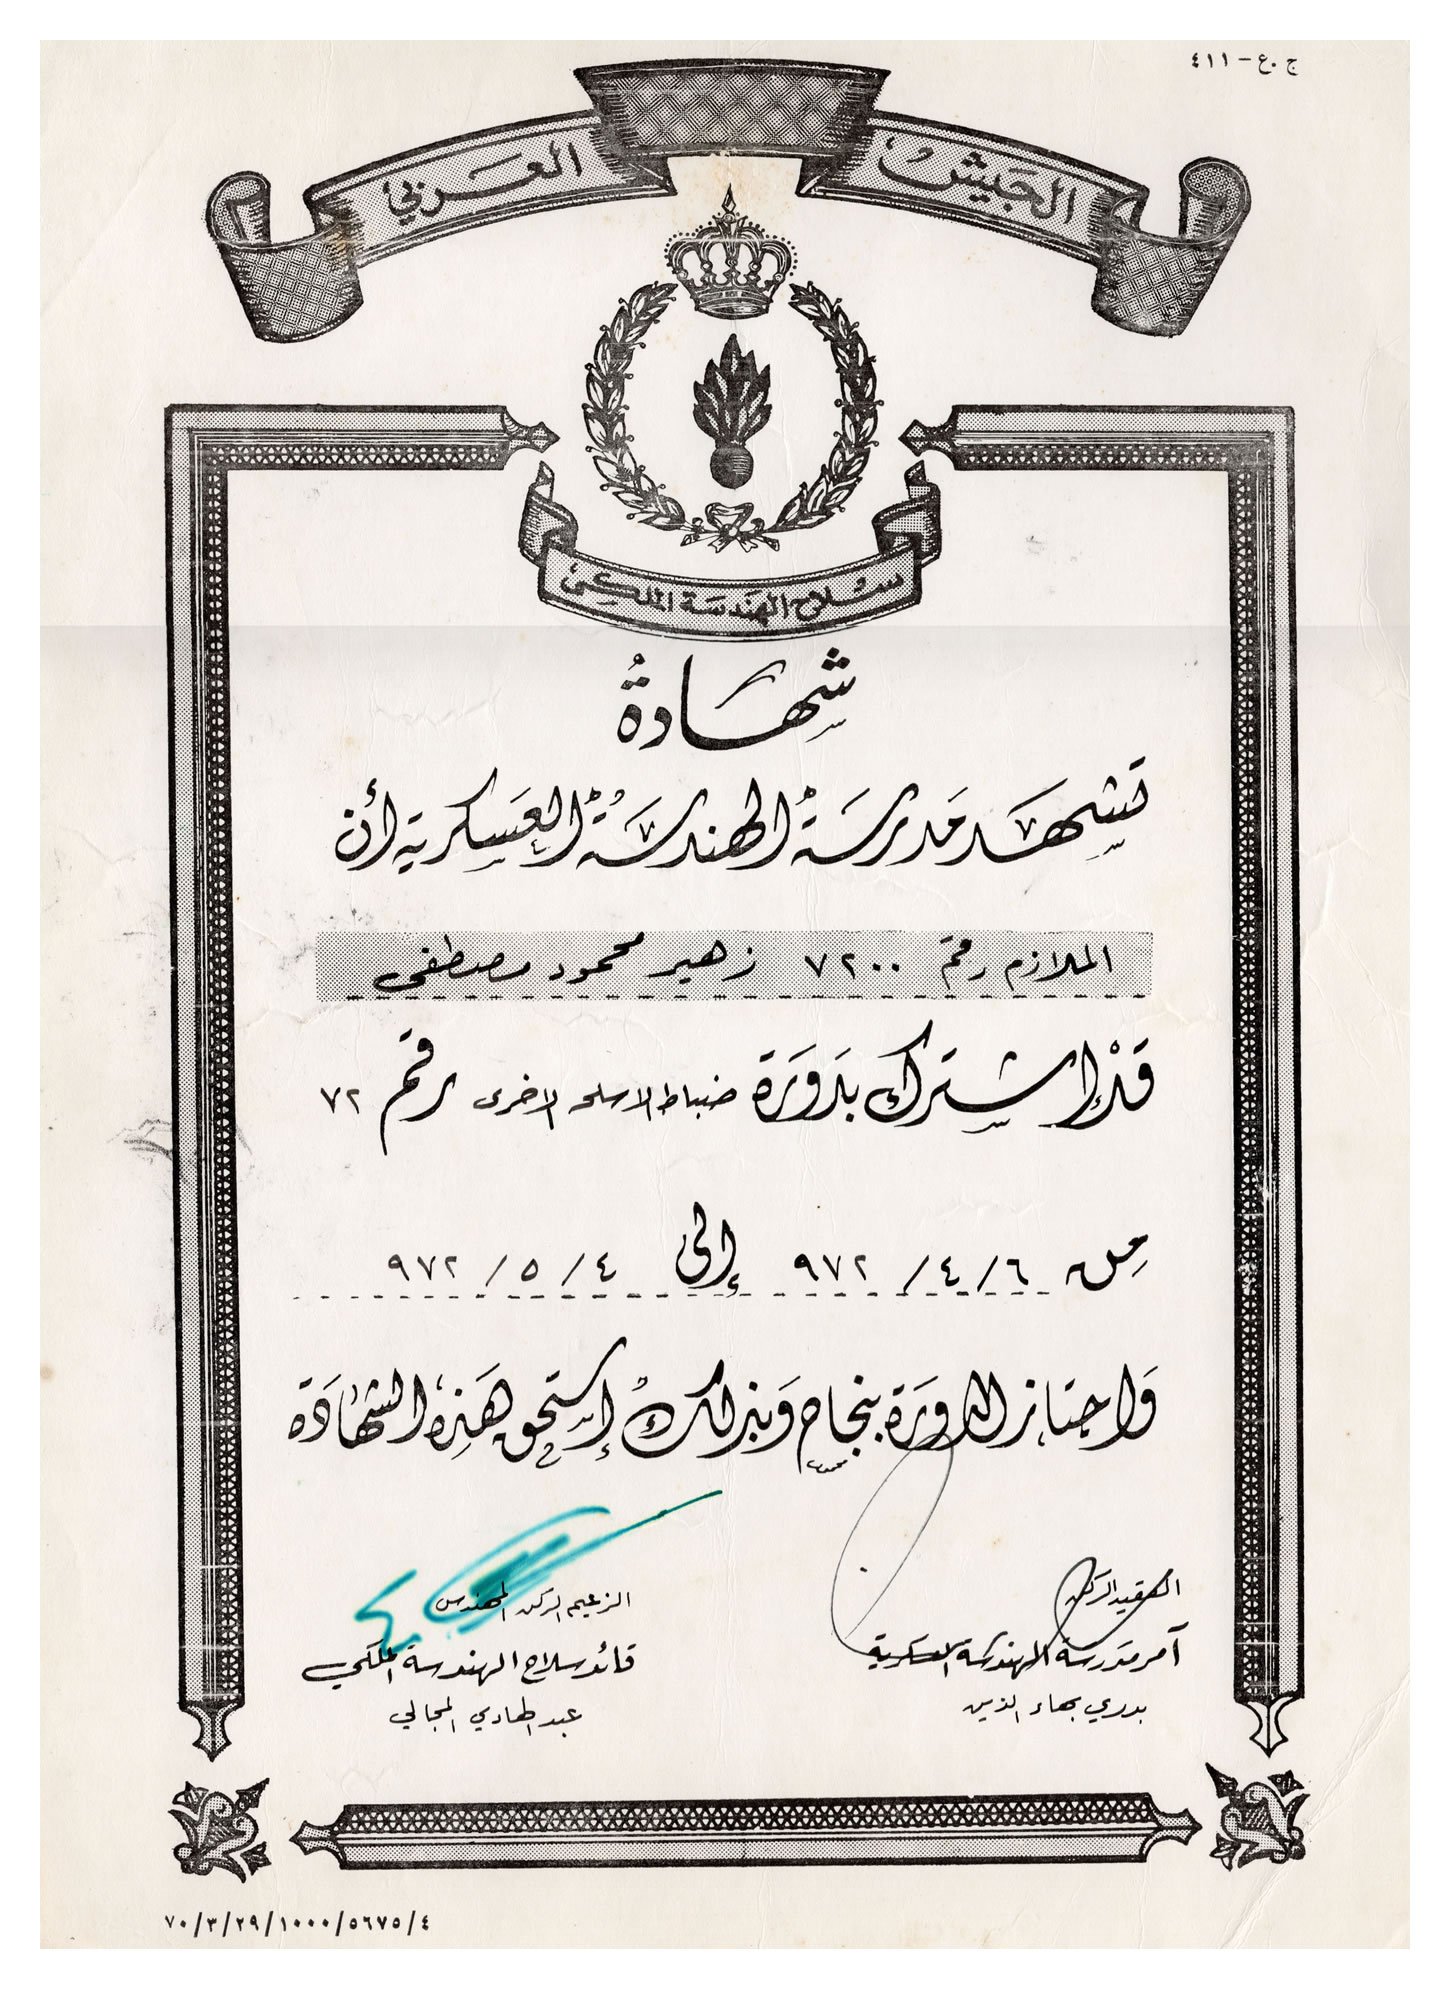 ج.ع-٤١١
الجيش العربي
سلاح الهندسة الملكي
شهادة
تشهد مدرسة الهندسة العسكرية أن
الملازم رقم ٧٢٠٠ زهير محمود مصطفى
قد اشترك بدورة ضباط الاسلحه الاخرى رقم ٧٢
من ٦/٤/٩٧٢ إلى ٤/٥/٩٧٢
واجتاز الدورة بنجاح وبذلك إستحق هذه الشهادة
العقيد الركن
آمر مدرسة الهندسة العسكرية
بدري بهاء الدين
الزعيم الركن المهندس
قائد سلاح الهندسة الملكي
عبد الهادي المجالي
٧٠/٣/٢٩/١٠٠٠/٥٦٧٥/٤